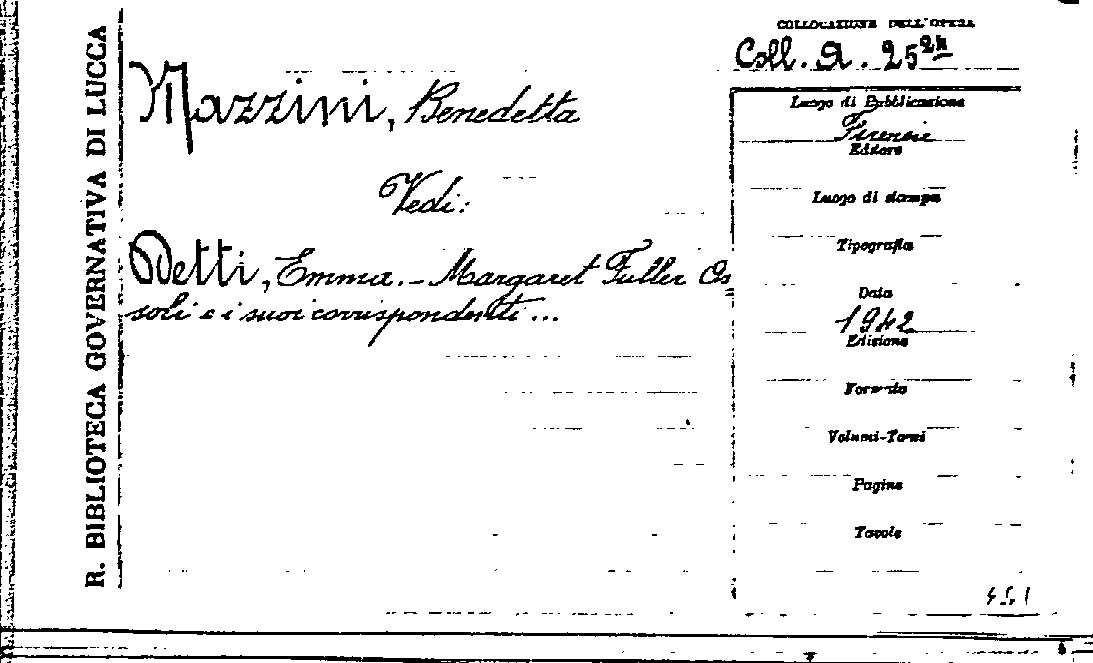 R. BIBLIOTECA GOVERNATIVA DI LUCCA
COLLOCAZIONE DELL'OPERA
Coll. A. 25
Mazzini, Benedetta
Vedi:
Detti, Emma. – Margaret Fuller Os=
soli e i suoi corrispondenti...
Luogo di Pubblicazione
Firenze
Editore
Luogo di stampa
Tipografia
Data
1942
Edizione
Formato
Volumi-Tomi
Pagine
Tavole